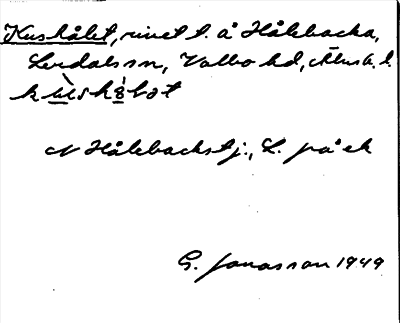 Kushålet, rivet t. å Hålebacka,
Lerdals sn, Valbo hd, Älvsb. l.
kùshó̀lət
N Hålebackstj., L. på ek
G. Jonasson 1949